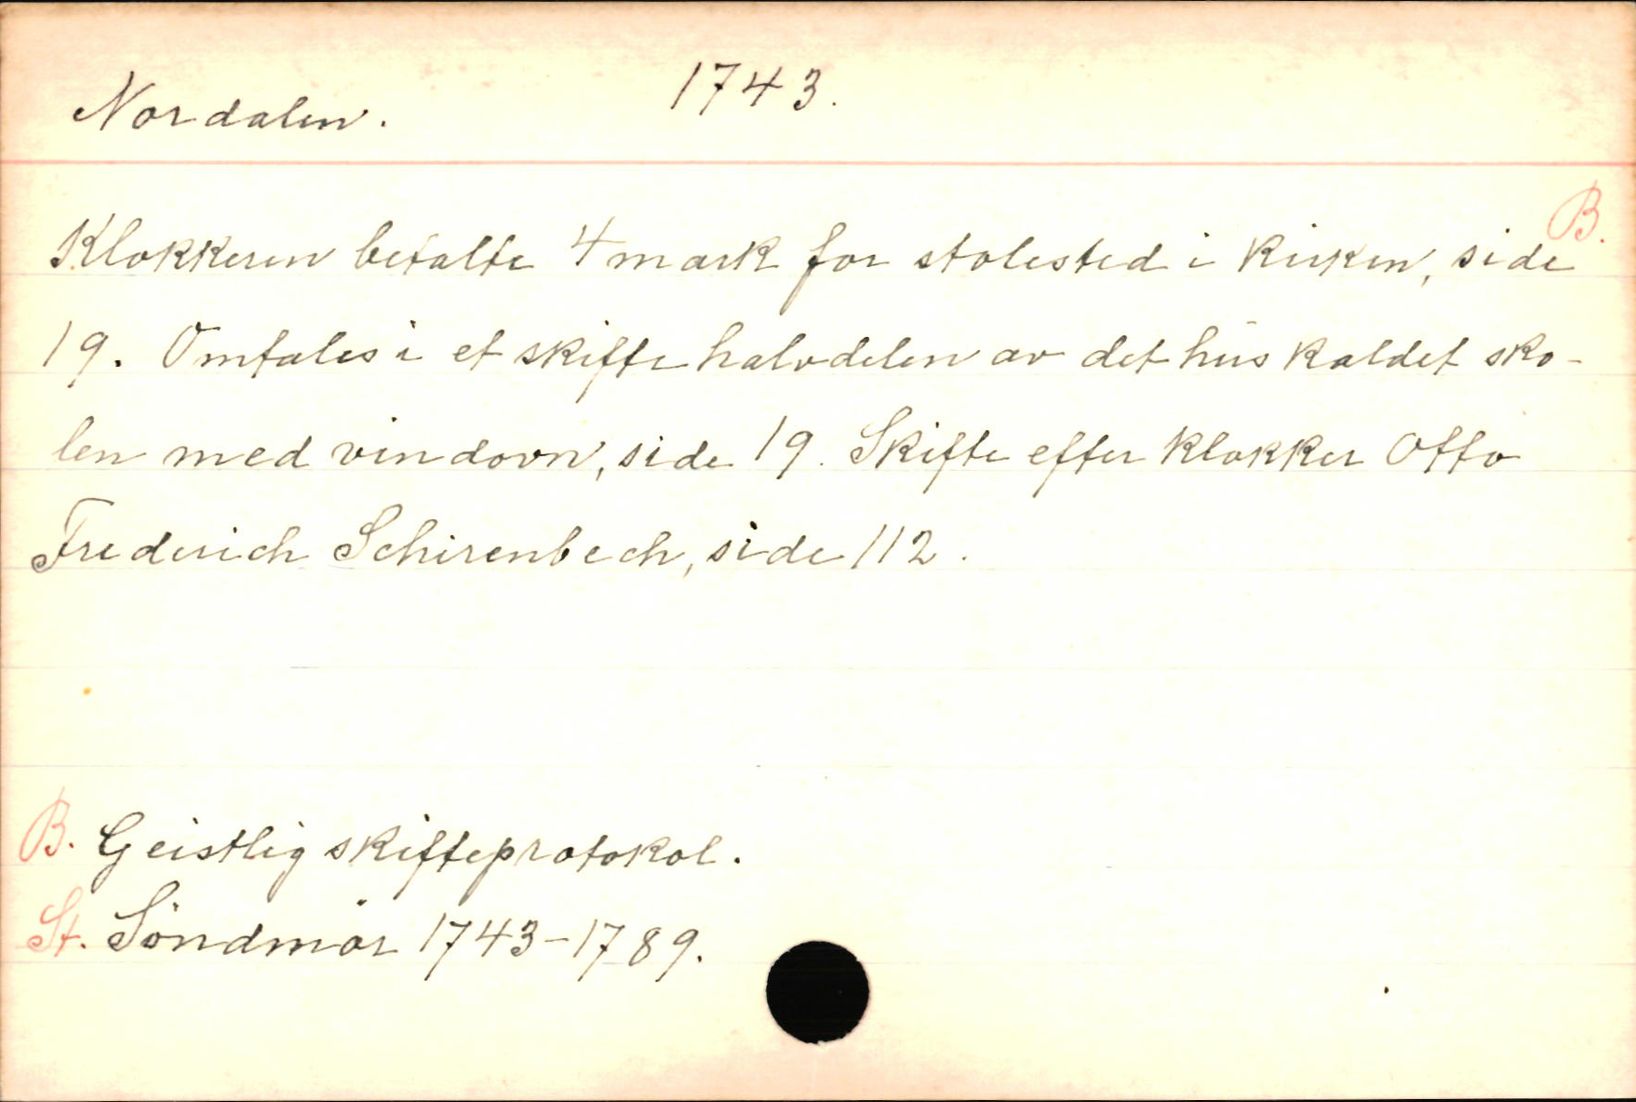 Nordalen. 1743.
B.
Klokkeren betalte 4 mark for stolested i kirken, side
19. Omtales i et skifte halvdelen av det hus kaldet sko-
len med vindovn, side 19. Skifte efter klokker Otto
Frederich Schirenbech, side 112.
B. Geistlig skifteprotokol.
St. Söndmör 1743-1789.